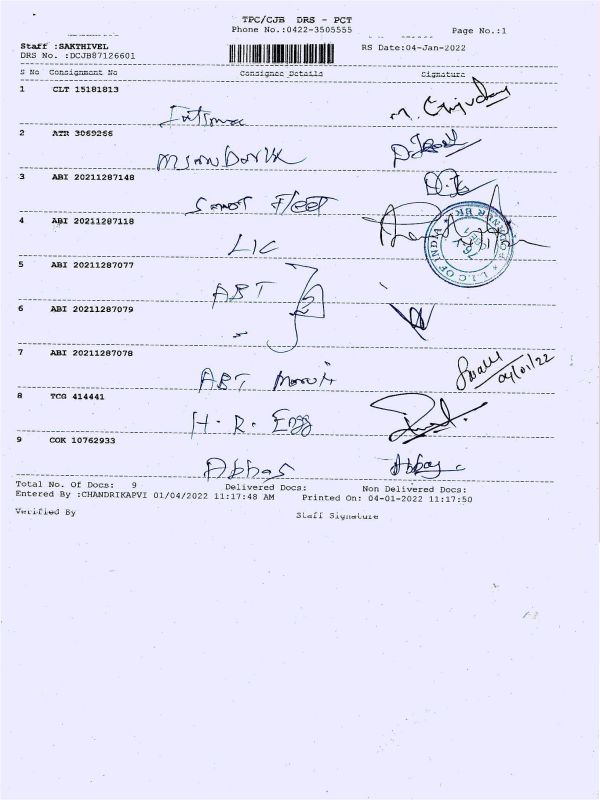 TPC/CJB DRS - PCT
Phone No.:0422-3505555 Page No.:1
Staff :SAKTHIVEL RS Date:04-Jan-2022
DRS No. :DCJB87126601
S No Consignment No Consignee Details Signature
1 CLT 15181813
2 ATR 3069266
3 ABI 20211287148
Fleet
4 ABI 20211287118
LIC
L.I.C OF INDIA
5 ABI 20211287077
ABT
6 ABI 20211287079
7 ABI 20211287078
04/01/22
ABT
8 TCG 414441
H. R. Engg
9 COK 10762933
Abbas
Total No. Of Docs: 9 Delivered Docs: Non Delivered Docs:
Entered By :CHANDRIKAPVI 01/04/2022 11:17:48 AM Printed On: 04-01-2022 11:17:50
Verified By Staff Signature